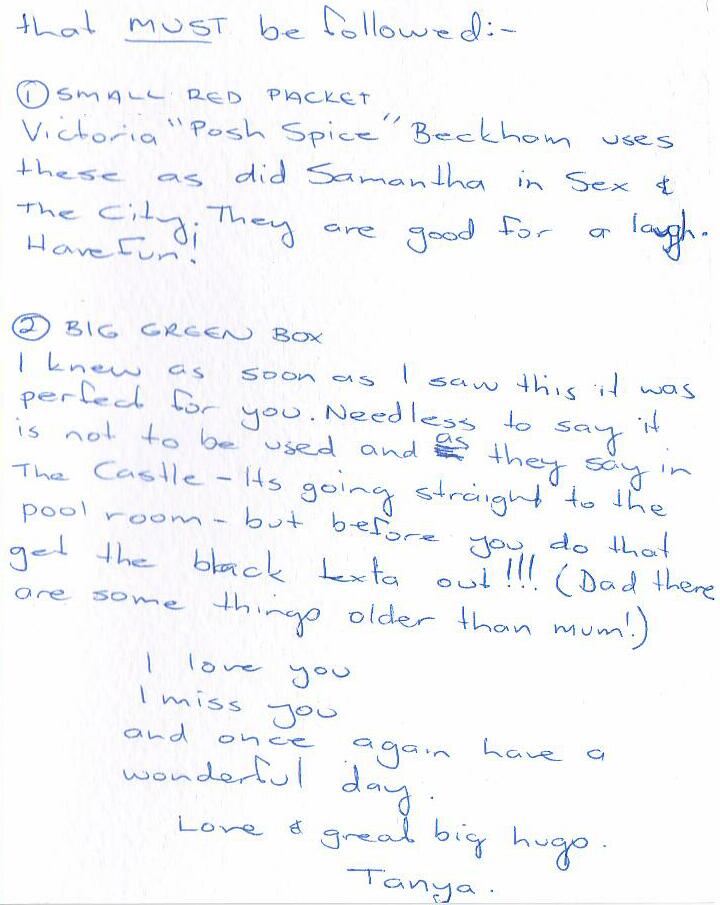 that MUST be followed:-
① SMALL RED PACKET
Victoria "Posh Spice" Beckham uses
these as did Samantha in Sex &
The City. They are good for a laugh.
Have fun!
② BIG GREEN BOX
I knew as soon as I saw this it was
perfect for you. Needless to say it
is not to be used and as they say in
The Castle - Its going straight to the
pool room - but before you do that
get the black texta out!!! (Dad there
are some things older than mum!)
I love you
I miss you
and once again have a
wonderful day.
Love & great big hugs.
Tanya.